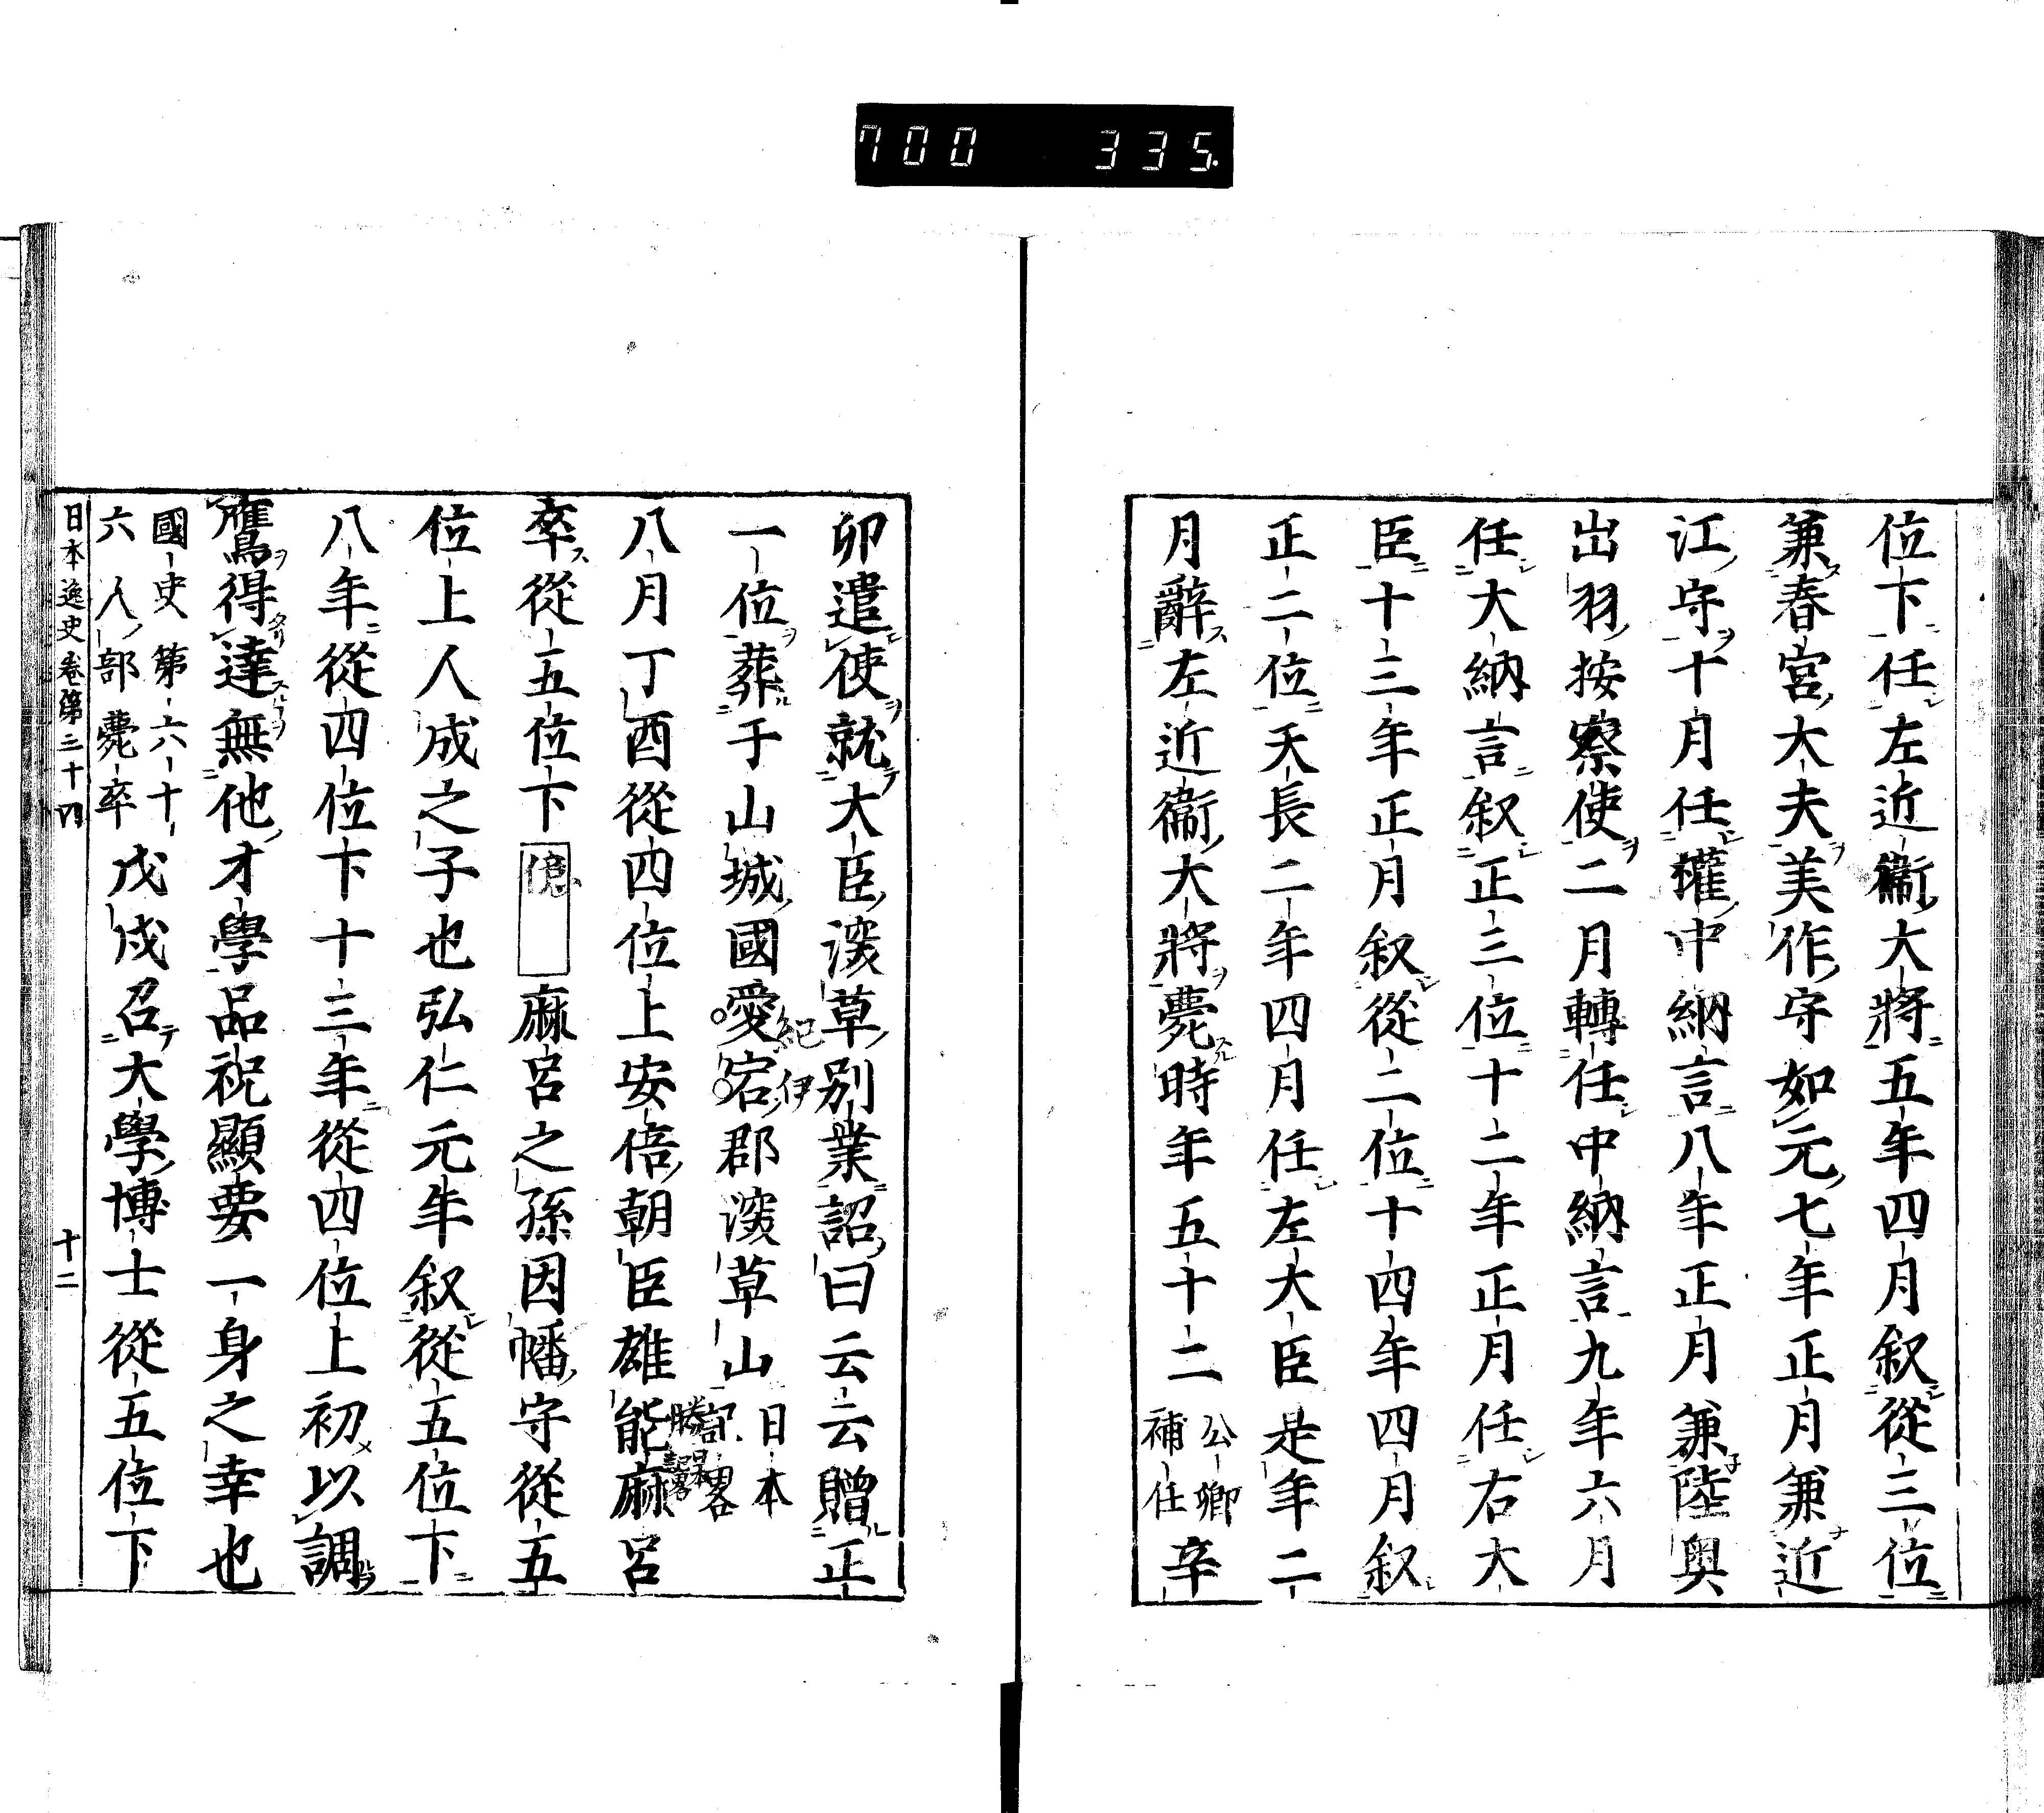 700 335
位下任左近衞大將五年四月叙從三位
兼春宮大夫美作守如元七年正月兼近
江守十月任權中納言八年正月兼陸奥
出羽按察使二月轉任中納言九年六月
任大納言叙正三位十二年正月任右大
臣十三年正月叙從二位十四年四月叙
正二位天長二年四月任左大臣是年二
月辭左近衞大將薨時年五十二公卿補任辛
卯遣使就大臣深草別業詔曰云云贈正
一位葬于山城國愛宕郡深草山日本記畧
紀伊
八月丁酉從四位上安倍朝臣雄能麻呂
勝
卒從五位下億麻呂之孫因幡守從五
位上人成之子也弘仁元年叙從五位下
八年從四位下十三年從四位上初以調
鷹得達無他才學品祝顯要一身之幸也
國史第六十六人部薨卒戊戌召大學博士從五位下
日本逸史卷第三十四 十二